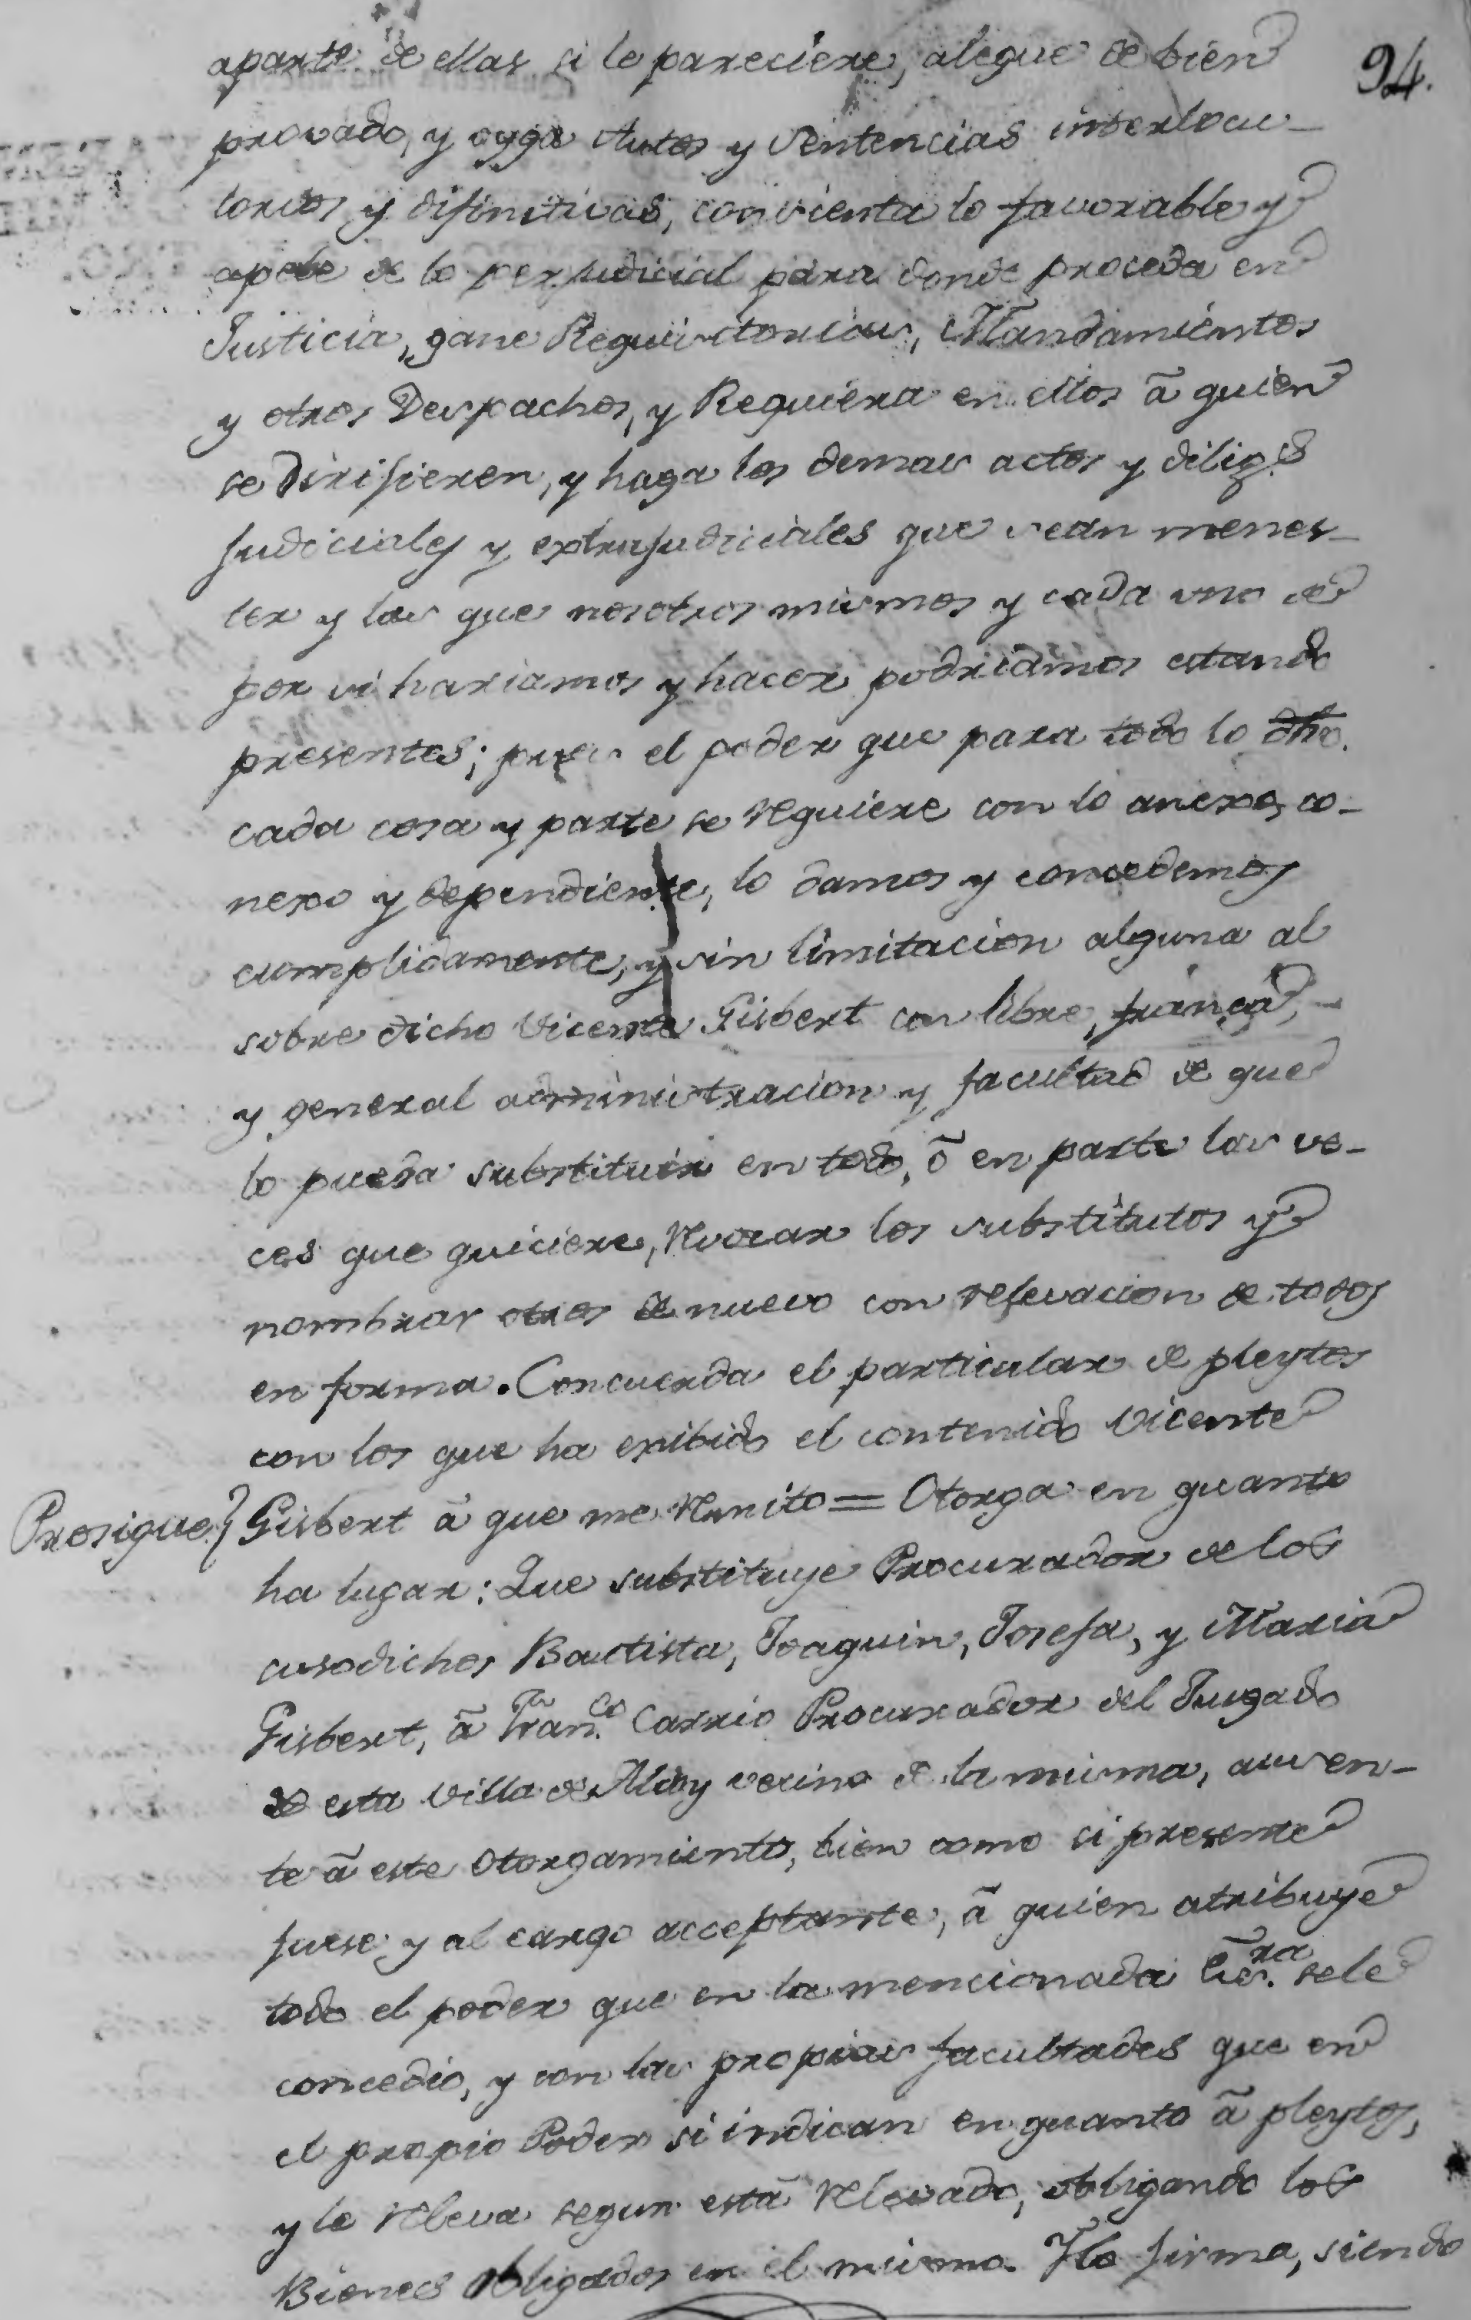 94.
aparte de ellas si le pareciere, alegue de bien
provado, y oyga Autos y Sentencias interlocu-
torios y difinitivas, convienta lo favorable y
apele de lo perjudicial para donde proceda en
Justicia, gane Requisitorias, Mandamientos
y otros Despachos, y Requiera en ellos â quien
se dirijieren, y haga los demas actos y dilig.s
judiciales y extrajudiciales que sean menes-
ter y las que nosotros mismos y cada uno de
por si hariamos y hacer podriamos estando
presentes; pues el poder que para todo lo dho.
cada cosa y parte se requiere con lo anexo, co-
nexo y dependiente, lo damos y concedemos
cumplidamente, y sin limitacion alguna al
sobre dicho Vicente Gisbert con libre, franca,
y general administracion y facultad de que
lo pueda substituir en todo, ô en parte las ve-
ces que quiciere, revocar los substitutos y
nombrar otros de nuevo con relevacion de todos
en forma. Concuerda el particular de pleytos
con los que ha exibido el contenido Vicente
Prosigue} Gisbert â que me remito = Otorga en quanto
ha lugar: Que substituye Procurador de los
susodichos Bautista, Joaquin, Josefa, y Maria
Gisbert, â Fran.co Carrio Procurador del Jusgado
de esta Villa de Alcoy vecino de la misma, ausen-
te â este otorgamiento, bien como si presente
fuese y al cargo acceptante, â quien atribuye
todo el poder que en la mencionada Es.ra se le
concedio, y con las propias facultades que en
el propio Poder si indican en quanto â pleytos,
y le releva segun está relevado, obligando los
Bienes obligados en el mismo. Y lo firma, siendo